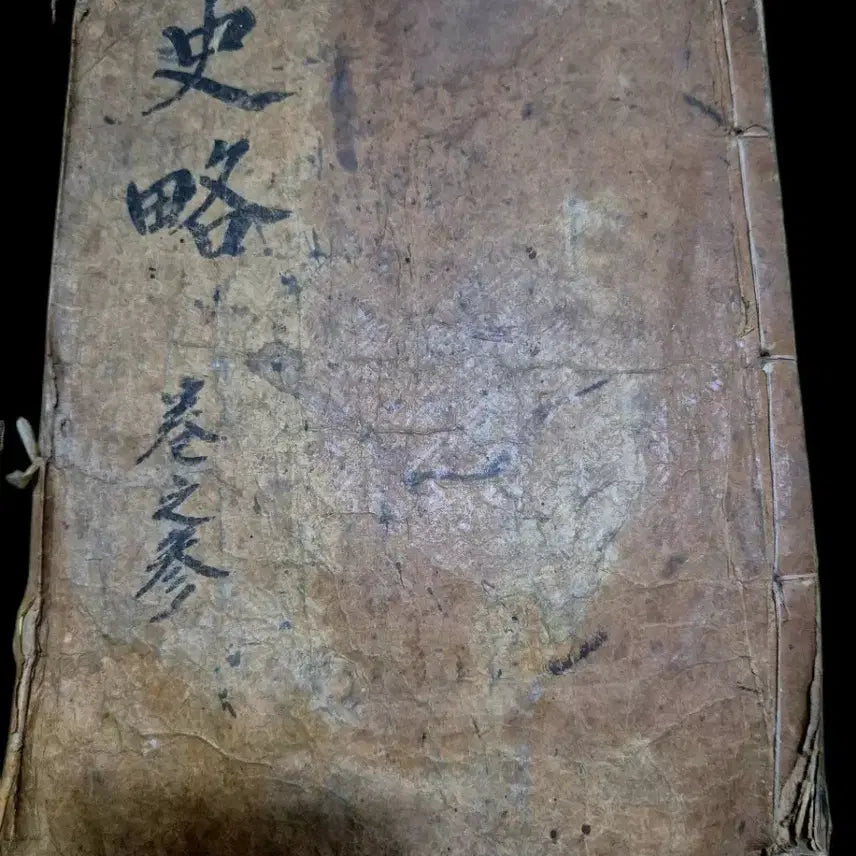 史略 卷之參